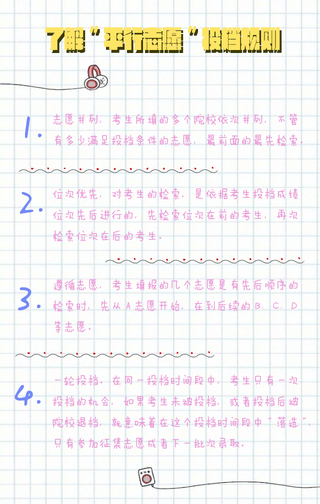 了解“平行志愿”投档规则
1.
志愿并列，考生所填的多个院校依次并列，不管
有多少满足投档条件的志愿，最前面的最先检索。
2.
位次优先，对考生的检索，是依据考生投档成绩
位次先后进行的，先检索位次在前的考生，再次
检索位次在后的考生。
3.
遵循志愿，考生填报的几个志愿是有先后顺序的
检索时，先从A志愿开始，在到后续的B、C、D
等志愿。
4.
一轮投档，在同一投档时间段中，考生只有一次
投档的机会，如果考生未被投档，或者投档后被
院校退档，就意味着在这个投档时间段中“落选”，
只有参加征集志愿或者下一批次录取。